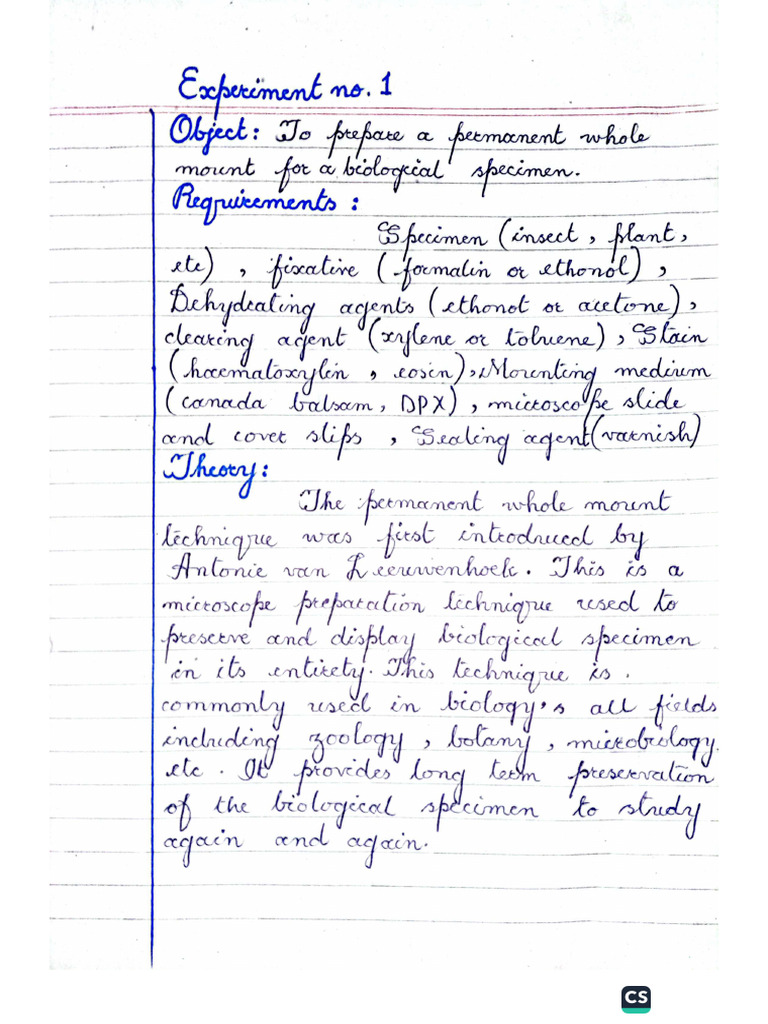 Experiment no. 1
Object: To prepare a permanent whole
mount for a biological specimen.
Requirements :
Specimen (insect, plant,
etc), fixative (formalin or ethonol),
Dehydrating agents (ethonot or acetone),
clearing agent (xylene or toluene), Stain
(haematoxylin, eosin), Mounting medium
(canada balsam, DPX), microscope slide
and cover slips, Sealing agent(varnish)
Theory:
The permanent whole mount
technique was first introduced by
Antonie van Leeuwenhoek. This is a
microscope preparation technique used to
preserve and display biological specimen
in its entirety. This technique is.
commonly used in biology's all fields
including zoology, botany, microbiology.
etc. It provides long term preservation
of the biological specimen to study
again and again.
CS